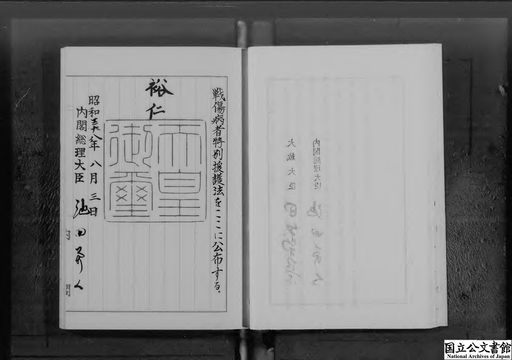 戦傷病者特別援護法をここに公布する。
裕仁
天皇御璽
昭和三十八年八月三日
内閣総理大臣 池田勇人
内閣総理大臣 池田勇人
大蔵大臣 田中角榮
国立公文書館
National Archives of Japan